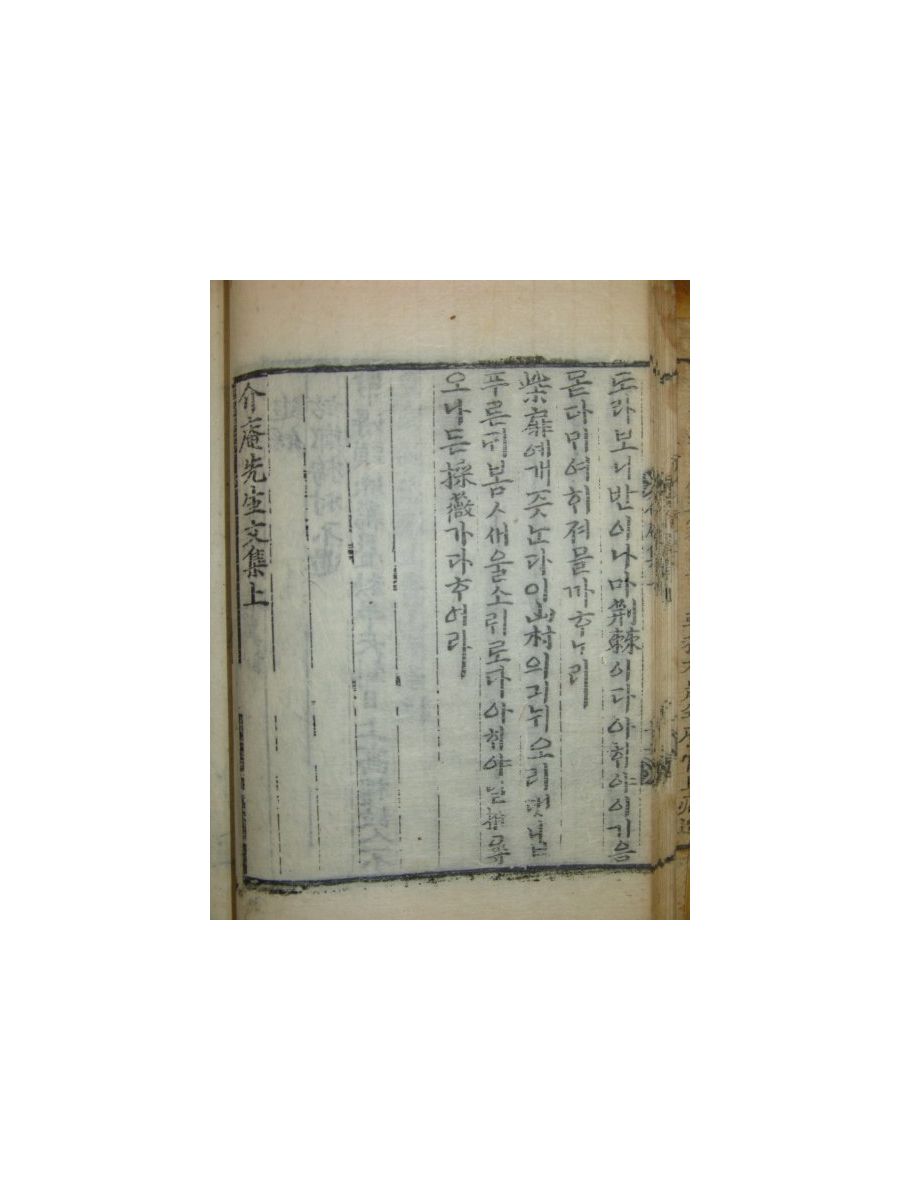 도라보니반이나마荊棘이다아ᄒᆡ야이기음
몯다ᄆᆡ여ᄒᆡ져믈까ᄒᆞ노라
柴扉예개즛ᄂᆞᆫ다이山村의긔뉘오리댓닙
푸른ᄃᆡ봄ㅅ새울소ᄅᆡ로다아ᄒᆡ야날推尋
오나든採薇가다ᄒᆞ여라
介庵先生文集上